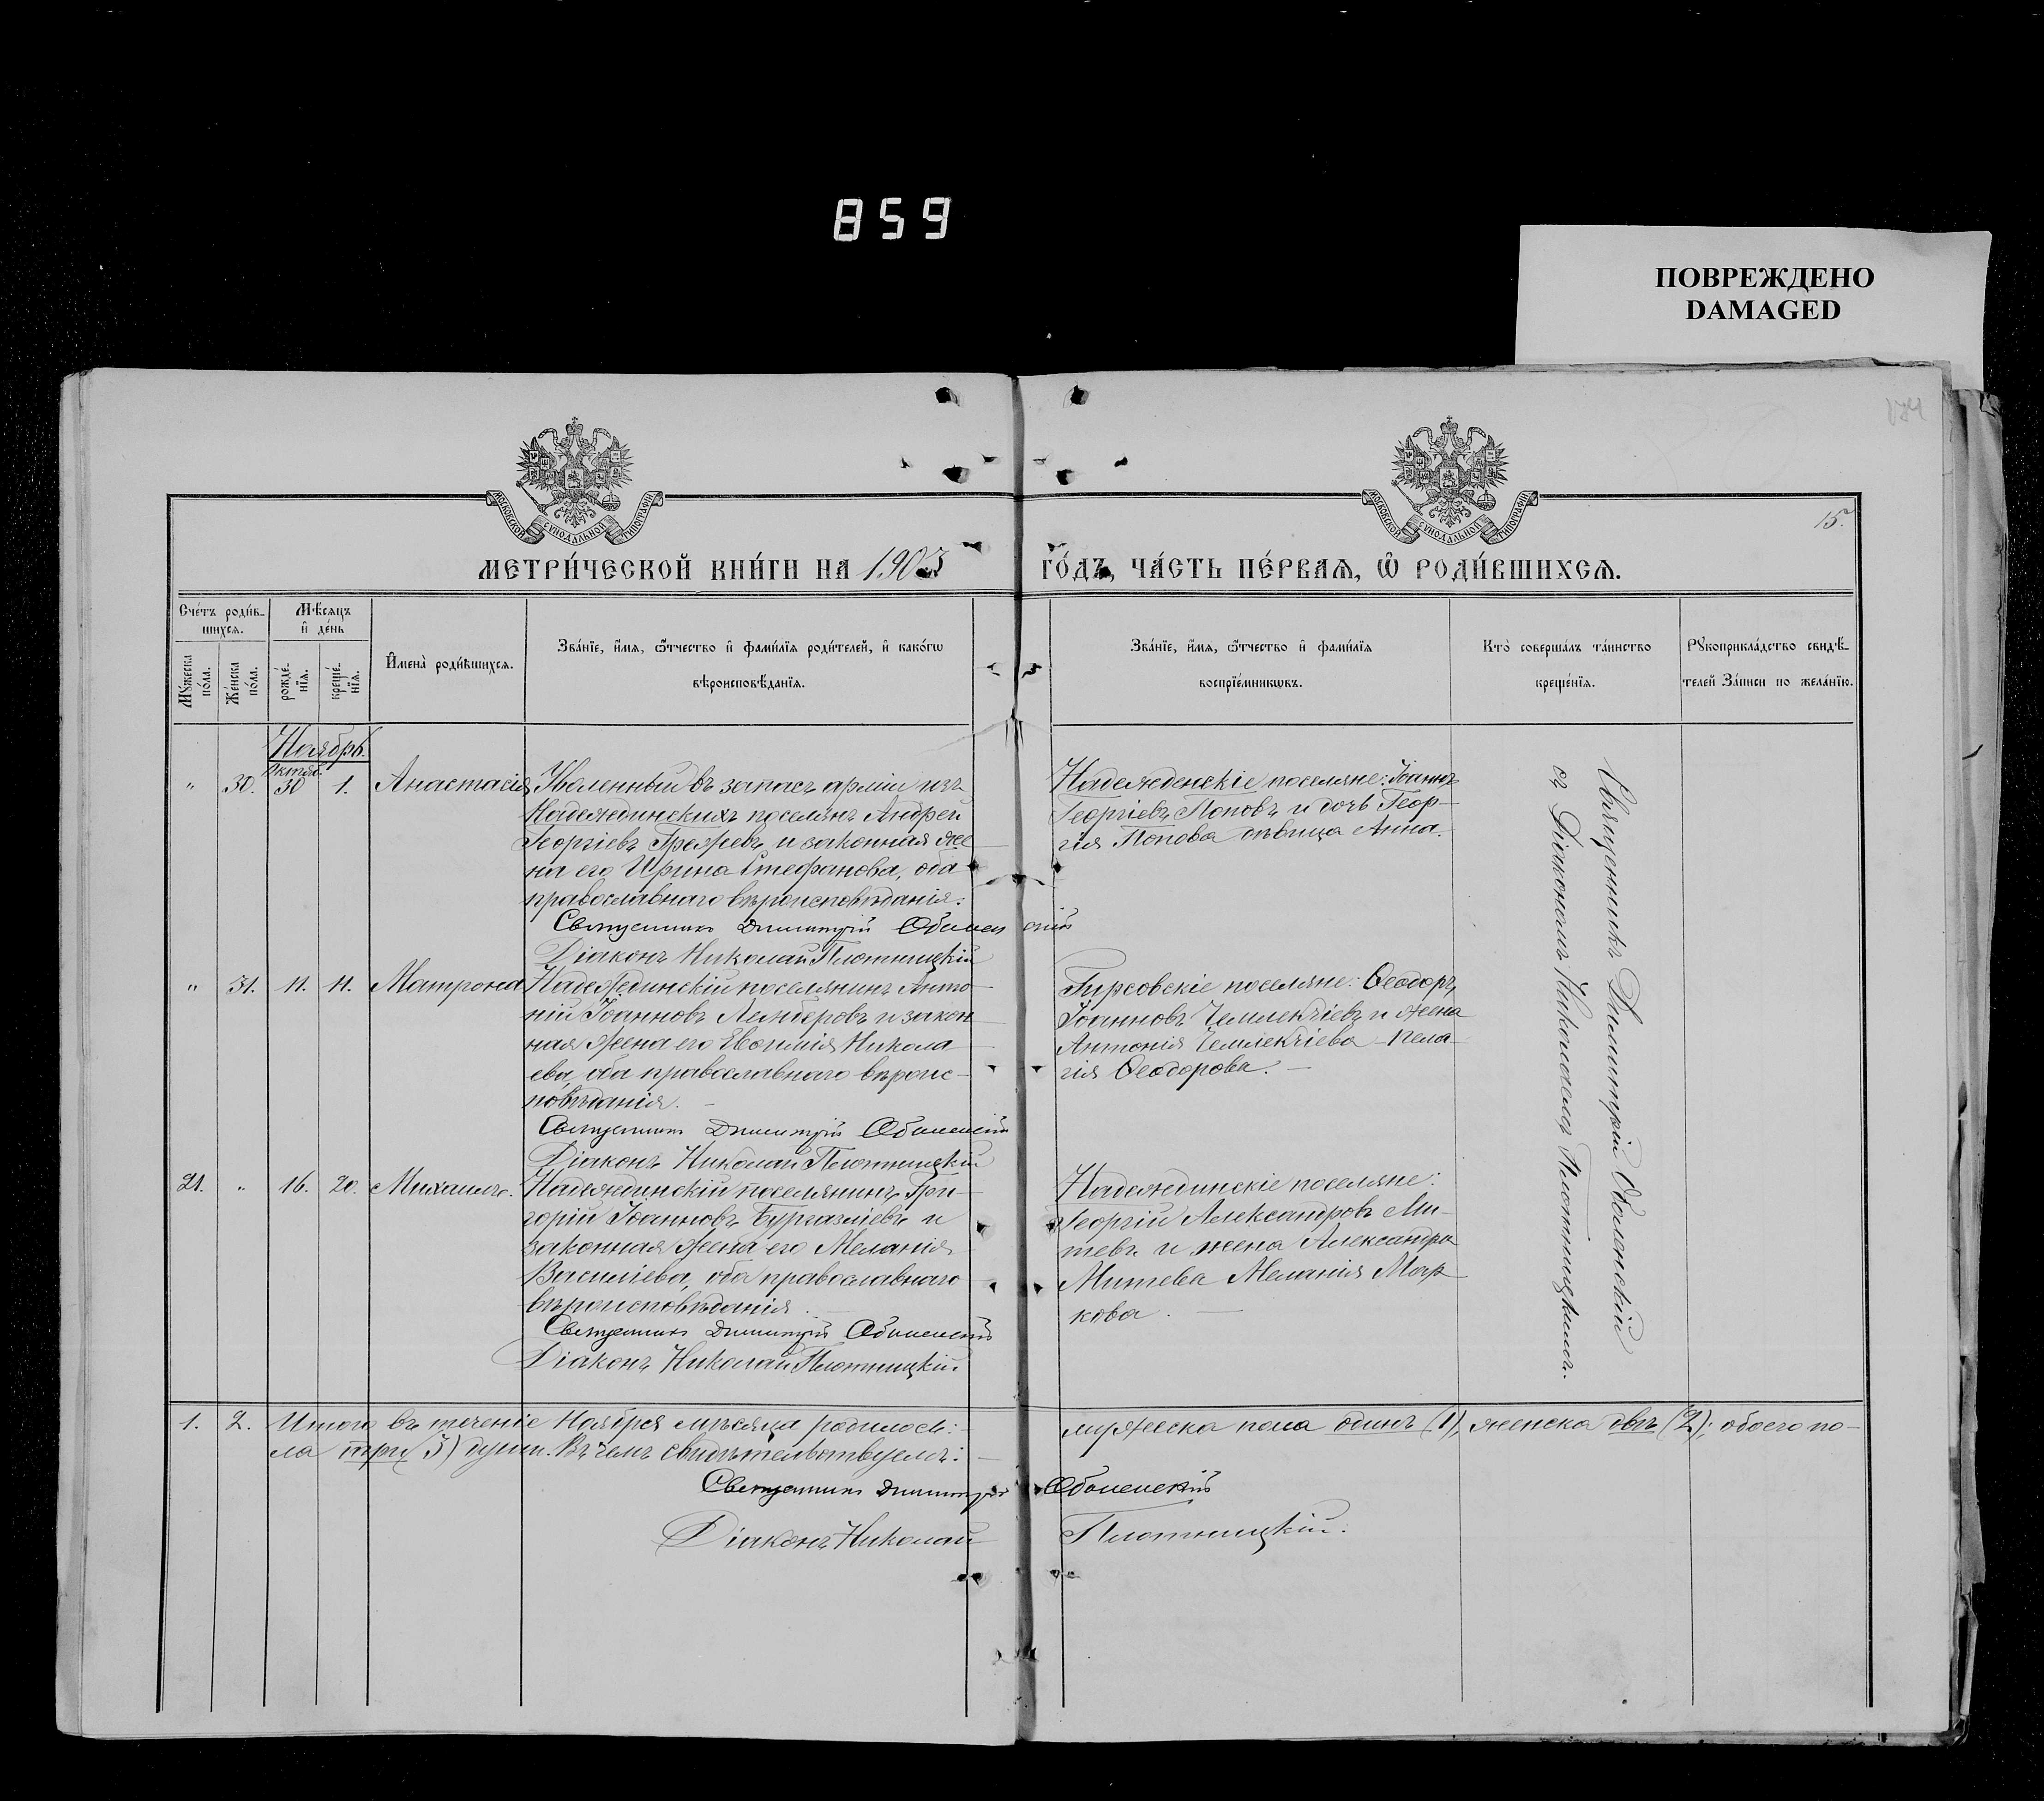 859
ПОВРЕЖДЕНО
DAMAGED
174
15.
МОСКОВСКОЙ СѴНОДАЛЬНОЙ ТИПОГРАФІИ
МОСКОВСКОЙ СѴНОДАЛЬНОЙ ТИПОГРАФІИ
МЕТРИ́ЧЕСКОЙ КНИ́ГИ НА 1903 ГО́ДЪ, ЧА́СТЬ ПЕ́РВАѦ, Ѡ҆ РОДИ́ВШИХСѦ.
Сче́тъ роди́в-
шихсѧ.
Мѣ́сѧцъ
и҆ де́нь
Мꙋ́жеска по́ла.
Же́нска по́ла.
рожде́-
нїѧ.
креще́-
нїѧ.
И҆мена̀ роди́вшихсѧ.
Зва́нїе, и҆́мѧ, ѻ҆́тчество и҆ фами́лїѧ роди́телей, и҆ како́гѡ
вѣроисповѣ́данїѧ.
Зва́нїе, и҆́мѧ, ѻ҆́тчество и҆ фами́лїѧ
воспрїе́мникѡвъ.
Кто̀ соверша́лъ та́инство
креще́нїѧ.
Рꙋкоприкла́дство свидѣ́-
телей За́писи по жела́нїю.
Ноябрь.
Октяб.
" 30. 30 1. Анастасія
Уволенный въ запасъ арміи изъ
Надеждинскихъ поселянъ Андрей
Георгіевъ Греževъ и законная же
на его Ирина Стефанова, оба
православнаго вѣроисповѣданія:
Священникъ Димитрій Оболенскій
Діаконъ Николай Плотницкій
Надежденскіе поселяне: Іоаннъ
Георгіевъ Поповъ и дочь Геор-
гія Попова дѣвица Анна.
" 31. 11. 11. Матрона
Надеждинскій поселянинъ Анто
ній Іоанновъ Лембровъ и закон
ная жена его Евѳимія Никола
ева, оба православнаго вѣроис-
повѣданія.
Священникъ Димитрій Оболенскій
Діаконъ Николай Плотницкій
Гирсовскіе поселяне: Ѳеодоръ
Іоанновъ Чемлекчіевъ и жена
Антонія Чемлекчіева Пела-
гія Ѳеодорова.
21. " 16. 20. Михаилъ.
Надеждинскій поселянинъ Гри-
горій Іоанновъ Бургазліевъ и
законная жена его Меланія
Василіева, оба православнаго
вѣроисповѣданія.
Священникъ Димитрій Оболенскій
Діаконъ Николай Плотницкій.
Надеждинскіе поселяне:
Георгій Александровъ Ми-
тевъ и жена Александра
Митева Меланія Мар-
кова.
Священникъ Димитрій Оболенскій
съ Діакономъ Николаемъ Плотницкимъ.
1. 2. Итого въ теченіе Ноября мѣсяца родилось: мужеска пола одинъ (1), женска двѣ (2); обоего по-
ла три (3) души. Въ чемъ свидѣтельствуемъ:
Священникъ Димитрій Оболенскій
Діаконъ Николай Плотницкій.